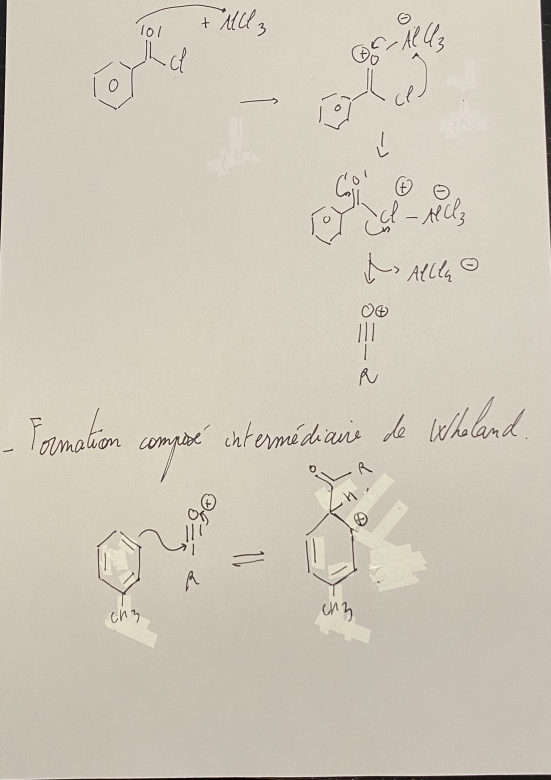 |O| + AlCl3
⊖
⊕ O AlCl3
Cl
O Cl
|O| ⊕ ⊖
O Cl - AlCl3
AlCl4 ⊖
O⊕
|||
R
- Formation composé intermédiaire de Wheland.
O R
H
⊕ O ⊕
R
CH3 CH3